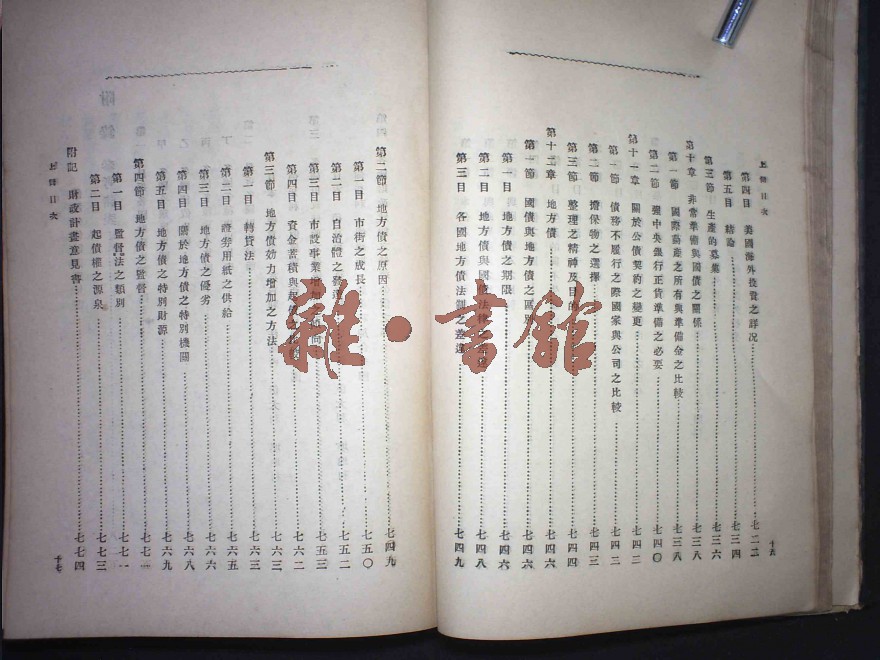 上冊目次
第四目 美國海外投資之詳況……七二二
第五目 結論……七三四
第三節 生產的募集……七三六
第十章 非常準備與國債之關係……七三八
第一節 國際動產之所有與準備金之比較……七三八
第二節 強中央銀行正貨準備之必要……七四〇
第十一章 關於公債契約之變更……七四二
第一節 債務不履行之際國家與公司之比較……七四二
第二節 擔保物之選擇……七四三
第三節 整理之精神及目的……七四四
第十二章 地方債……七四六
第一節 國債與地方債之區別……七四六
第一目 地方債之期限……七四六
第二目 地方債與國際法……七四八
第三目 各國地方債法制之差違……七四九
十六
第二節 地方債之原因……七四九
第一目 市街之成長……七五〇
第二目 自治體之發達……七五二
第三目 市設事業增加之傾向……七五三
第四目 資金蓄積與起債之……七六二
第三節 地方債効力增加之方法……七六三
第一目 轉貸法……七六三
第二目 證券用紙之供給……七六五
第三目 地方債之優劣……七六六
第四目 關於地方債之特別機關……七六八
第五目 地方債之特別財源……七六九
第四節 地方債之監督……七七一
第一目 監督法之類別……七七一
第二目 起債權之源泉……七七三
附記 財政計畫意見書……七七四
上冊目次
十七
雜·書館